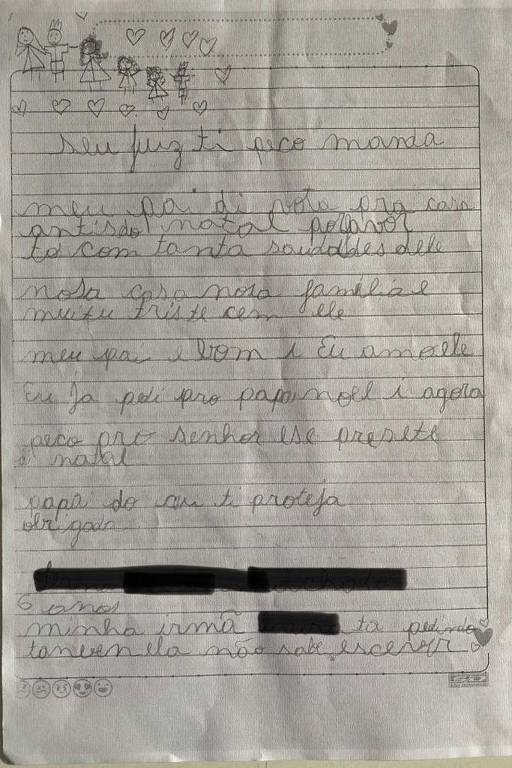 seu juiz ti peco manda
meu pai di vota pra casa
antisdo natal porfavor
to com tanta saudaldes dele
nosa casa nosa familia e
muitu triste cem ele
meu pai e bom i Eu amo ele
Eu Ja pedi pro papai noel i agora
peco pro senhor ese presete
di natal
papai do ceu ti proteja
obrigado
6 anos
minha irmã ta pedindo
tanven ela não sabe escerver